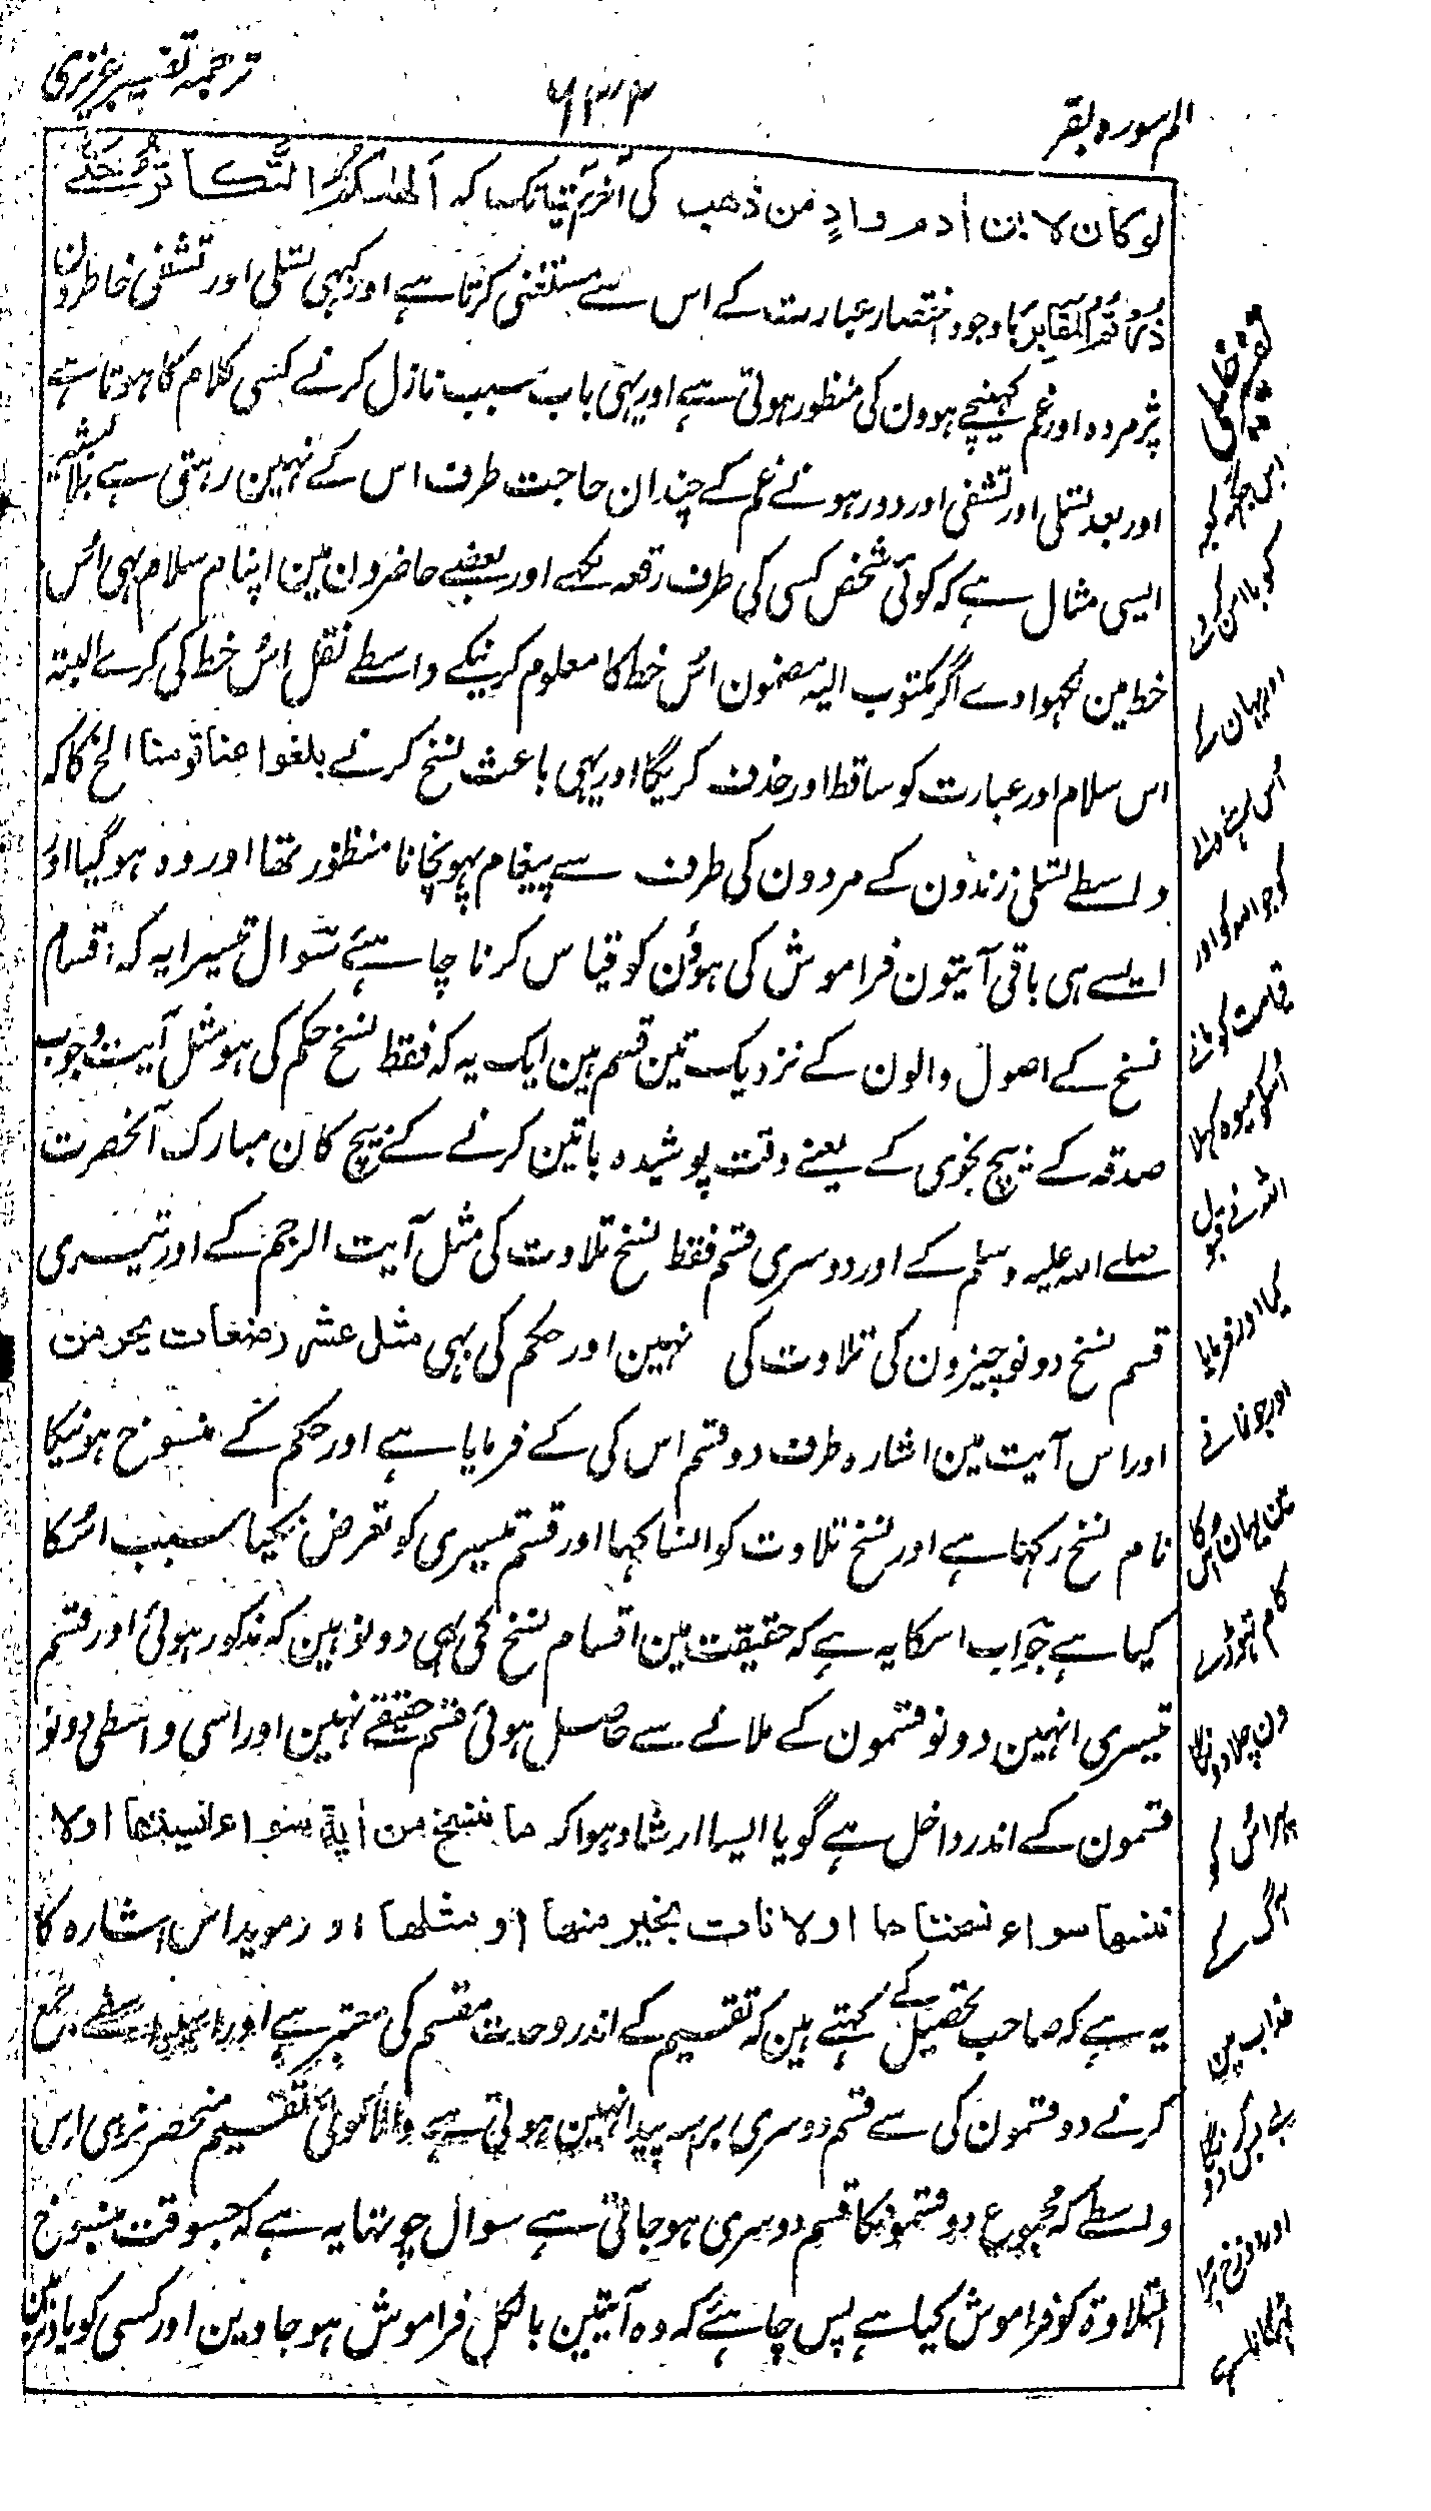 ترجمہ تفسیر عزیزی
۶۳۳
الم سورہ بقر
لوکان لابن اٰدم وادٍ من ذھب کی آخر تیئاتک کہ اَلْھٰىکُمُ التَّکَاثُرُ حَتّٰے
زُرْتُمُ الْمَقَابِرَ باوجود اختصار عبارت کے اس سے مستغنی کرتا ہے اور کبہی تسلی اور تشفی خاطرون
پژمردہ اور غم کہنچے ہوون کی منظور ہوتی ہے اور یہی باب سبب نازل کرنے کسی کلام کا ہوتا ہے
اور بعد تسلی اور تشفی اور دور ہونے غم کے چندان حاجت طرف اس کے نہین رہتی ہے بلا تشبیہ
ایسی مثال ہے کہ کوئی شخص کسی کی طرف رقعہ لکہے اور بعضے حاضرون مین اپنا م سلام بہی اُس
خط مین لکہوا دے اگر مکتوب الیہ مضمون اُس خط کا معلوم کرنیکے واسطے نقل اُس خط کی کرے البتہ
اس سلام اور عبارت کو ساقط اور حذف کریگا اور یہی باعث نسخ کرنے بلغوا عنا قومنا الخ کا کہ
واسطے تسلی زندون کے مردون کی طرف سے پیغام پہونچانا منظور تھا اور وہ ہو گیا اور
ایسے ہی باقی آیتون فراموش کی ہوئن کو قیاس کرنا چاہئے سوال تیسرا یہ کہ اقسام
نسخ کے اصول والون کے نزدیک تین قسم ہین ایک یہ کہ فقط نسخ حکم کی ہو مثل آیت وجوب
صدقہ کے بیچ نجوی کے یعنے وقت پوشیدہ باتین کرنے کے بیچ کان مبارک آنحضرت
صلے اللہ علیہ وسلم کے اور دوسری قسم فقط نسخ تلاوت کی مثل آیت الرجم کے اور تیسری
قسم نسخ دونو چیزون کی تلاوت کی نہین اور حکم کی بہی مثل عشر رضعات یحرمن
اور اس آیت مین اشارہ طرف دو قسم اس کی کے فرمایا ہے اور حکم کے منسوخ ہونیکا
نام نسخ رکہتا ہے اور نسخ تلاوت کو انسا کہا اور قسم تیسری کو تعرض نکیا سبب اُسکا
کیا ہے جواب اسکا یہ ہے کہ حقیقت مین اقسام نسخ کی یہی دونو ہین کہ مذکور ہوئی اور قسم
تیسری انہین دونو قسمون کے ملانے سے حاصل ہوئی قسم حقیقے نہین اور اسی واسطی دونو
قسمون کے اندر داخل ہے گویا ایسا ارشاد ہوا کہ ما ننسخ من اٰیة سواء انسینھا اولا
ننسھا سواء نسخناھا اولا نات بخیر منھا او مثلھا اور موید اس اشارہ کا
یہ ہے کہ صاحب تحصیل کے کہتے ہین کہ تقسیم کے اندر وحدت مقسم کی معتبر ہے اور جمع
کرنے دو قسمون کی سے قسم دوسری برسہ پیدا نہین ہوتی ہے والا کوئی تقسیم منحصر نرہی اس
واسطے کہ مجموع دو قسمونکا قسم دوسری ہو جاتی ہے سوال چوتہا یہ ہے کہ جسوقت منسوخ
التلاوۃ کو فراموش کیا ہے پس چاہئے کہ وہ آیتین بالکل فراموش ہو جاوین اور کسی کو یاد نرہین
اس جگہ
اور یہان
اُس لیے
کو جو اللہ کو اور
قیامت کو مانے
اسکو میوہ کہلا
اللہ نے قبول
کیا اور فرمایا
اور جو کافر نے
تین یہان اُس کا
کام تھوڑے
دن چلا دونگا
پہر اُس کو
آگ کے
عذاب مین
بے بس کر دونگا
اور دوزخ برا